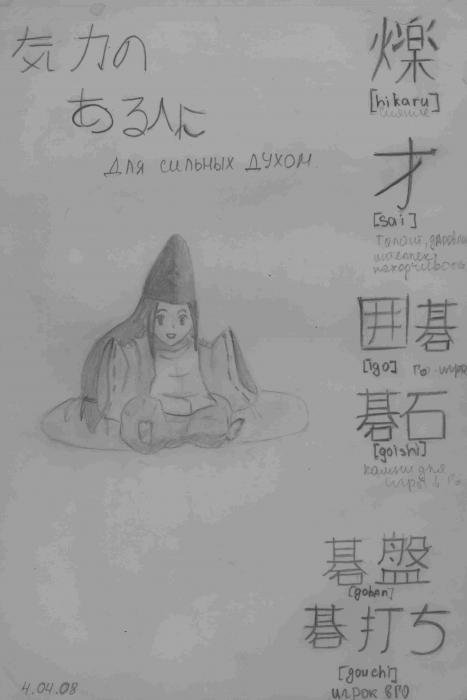 気力の
ある人に
для сильных духом
爍
[hikaru]
сияние
才
[sai]
талант,
интеллект,
находчивость
囲碁
[igo]
Го-игра
碁石
[goishi]
камни для
игры в Го
碁盤
[goban]
碁打ち
[gouchi]
игрок в ГО
4.04.08